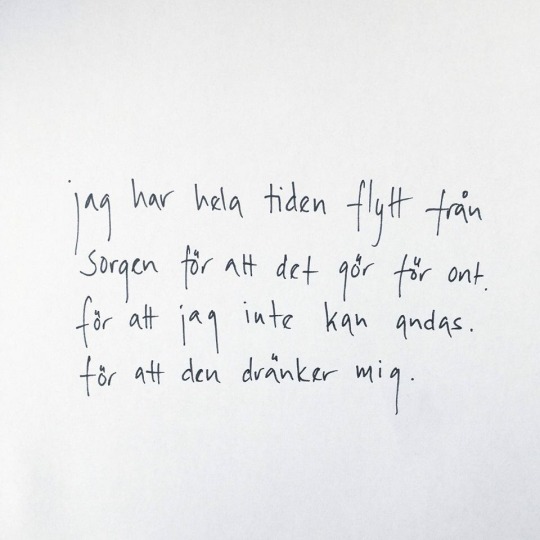 jag har hela tiden flytt från
sorgen för att det gör för ont.
för att jag inte kan andas.
för att den dränker mig.